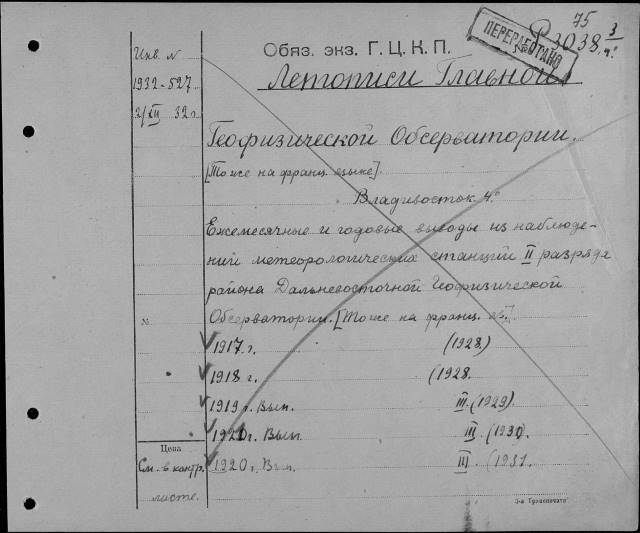 75
Р 3038 3/4°
ПЕРЕРАБОТАНО
Обяз. экз. Г.Ц.К.П.
Инв. N
1932-527
2/XII 32 г.
Летописи Главной
Геофизической Обсерватории.
[То же на франц. языке].
Владивосток. 4°
Ежемесячные и годовые выводы из наблюде-
ний метеорологических станций II разряда
района Дальневосточной Геофизической
№
Обсерватории. [То же на франц. яз.]
1917 г. (1928)
1918 г. (1928.
1919 г. Вып. III. (1929)
г. Вып. III. (1930).
1920 г. Вып. III. (1931.
Цена
См. в контр.
листе.